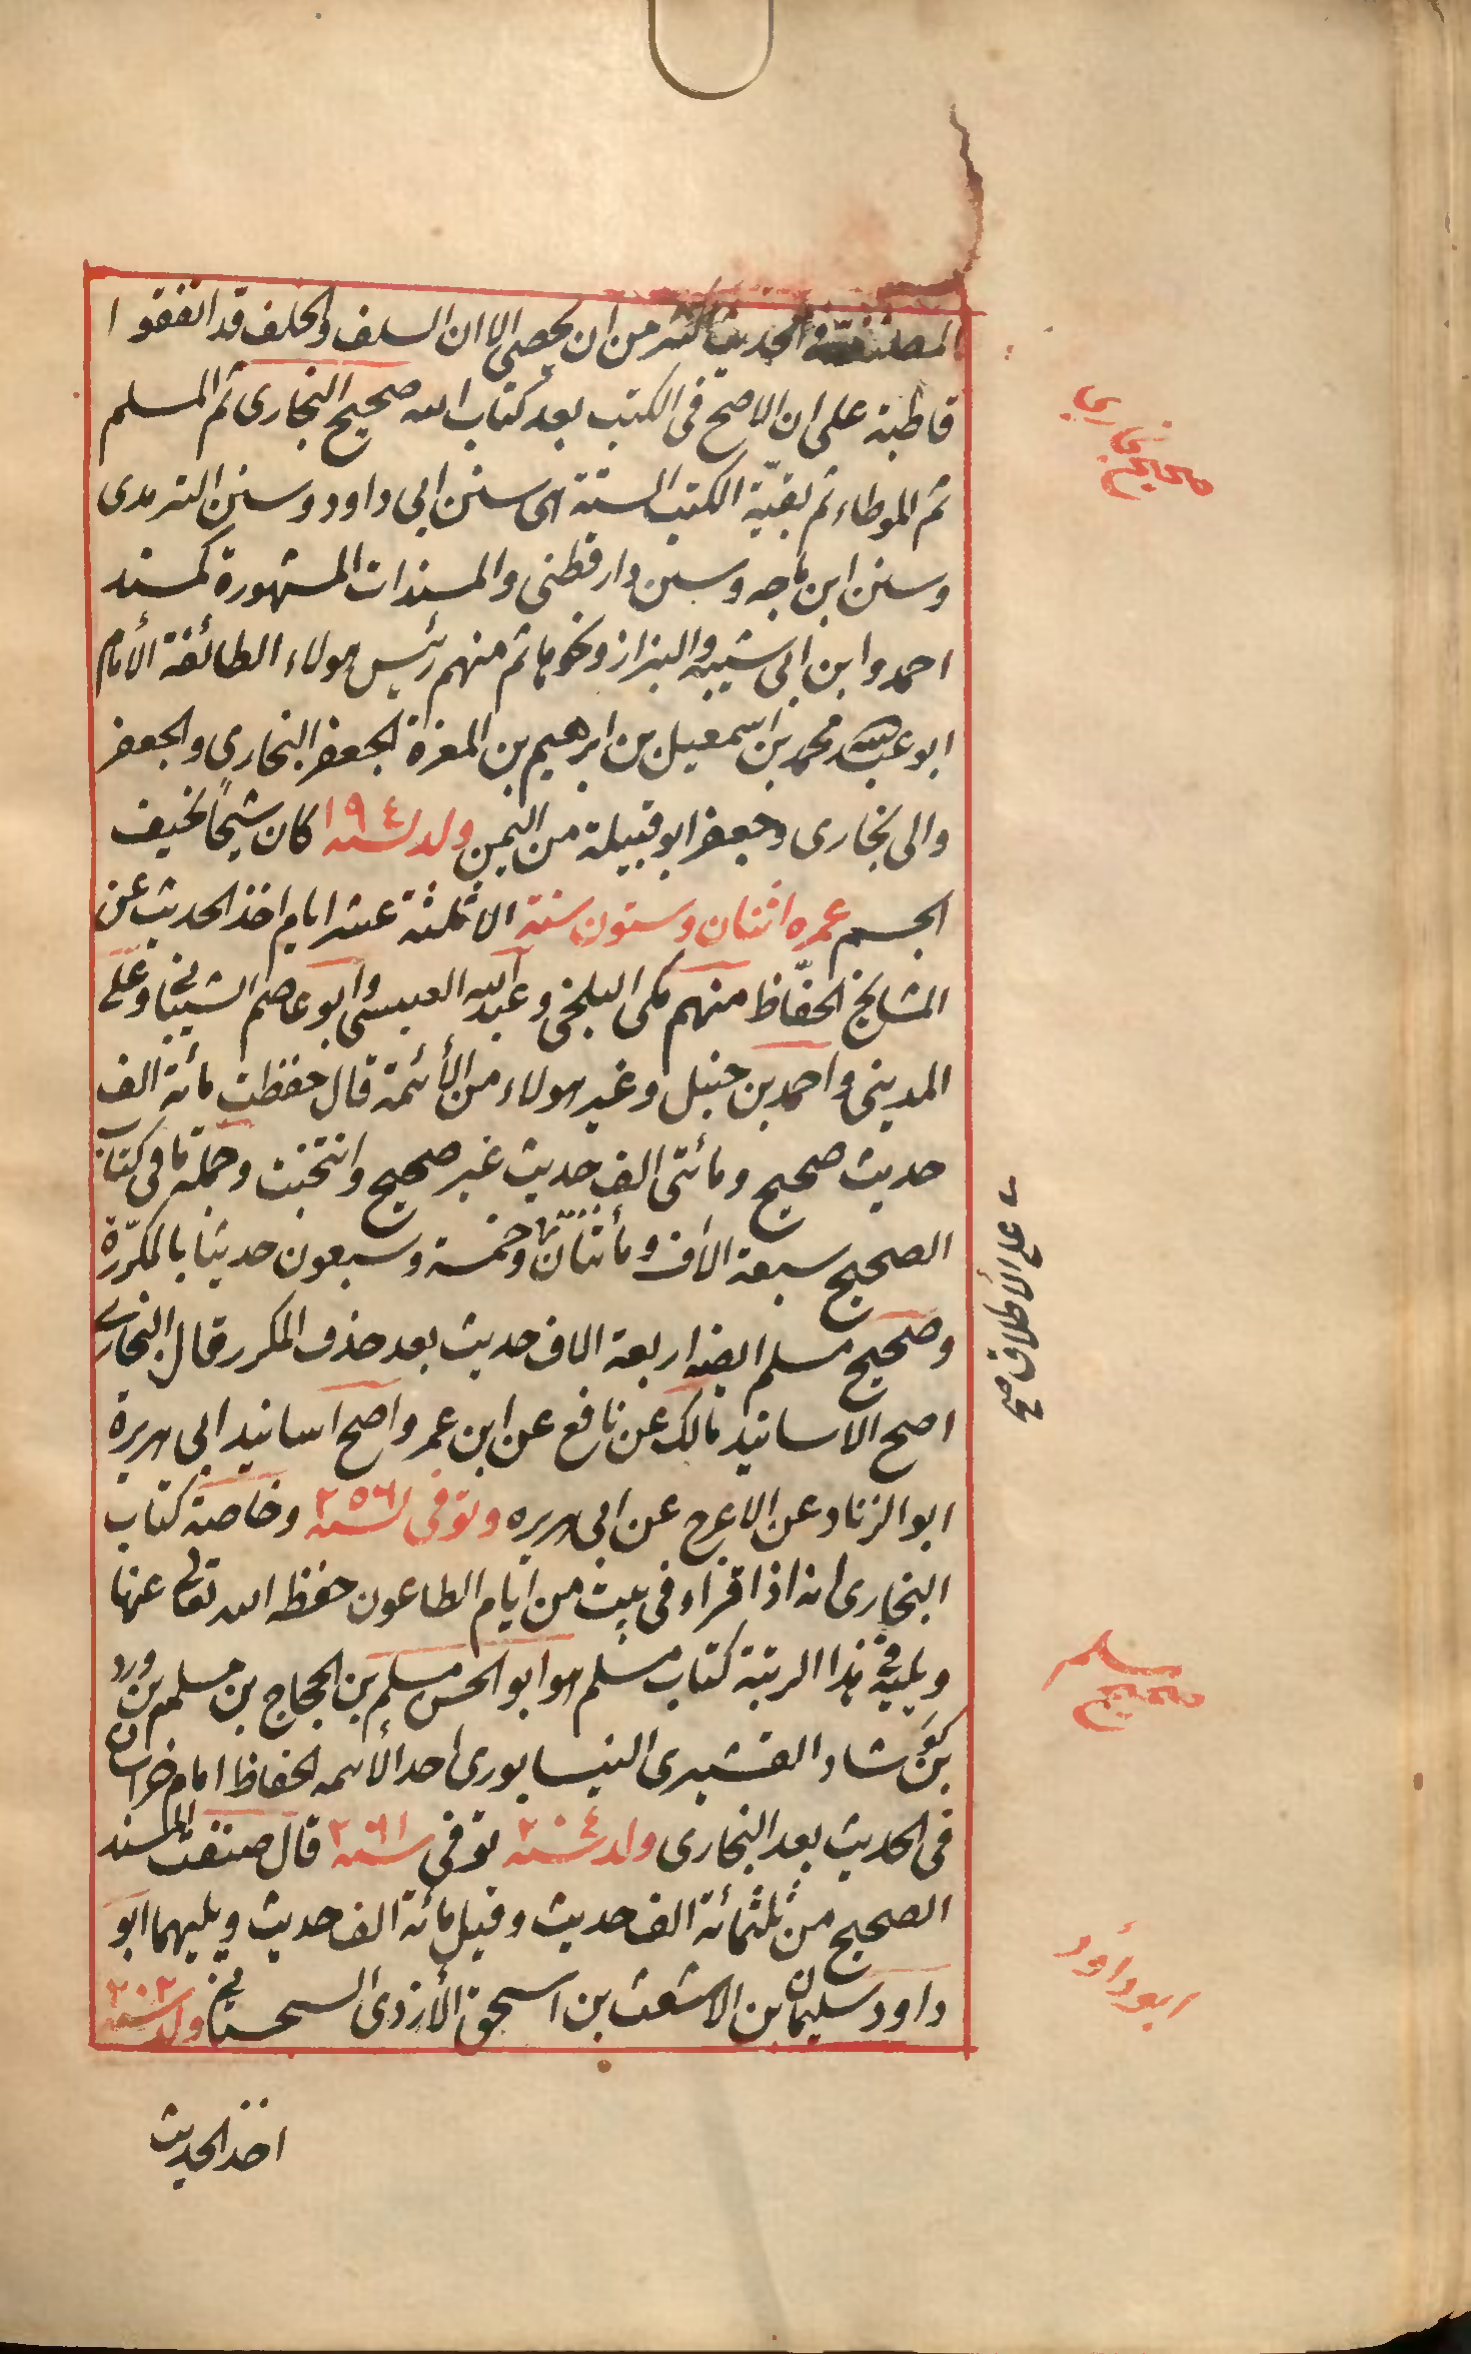 المصنفة فى الحديث اكثر من ان يحصى الا ان السلف والخلف قد اتفقوا
قاطبة على ان الاصح فى الكتب بعد كتاب الله صحيح البخارى ثم المسلم
ثم الموطاء ثم بقيّة الكتب الستة اى سنن ابى داود وسنن الترمدى
وسنن ابن ماجه وسنن دارقطنى والمسندات المشهورة كمسند
احمد وابن ابى شيبه والبزاز ونحوها ثم منهم رئيس هولاء الطائفة الأمام
ابو عبدالله محمد بن اسمعيل بن ابرهيم بن المغرة الجعفر البخارى والجعفر
والى بخارى وجعفر ابو قبيلة من اليمن ولد سنه ١٩٤ كان شيخاً نحيف
الجسم عمره اثنان وستون سنة الا ثلثة عشر ايام اخذ الحديث عن
المشايخ الحفّاظ منهم مكى البلخى وعبد الله العبسى وابو عاصم الشيبانى وعلى
المدينى واحمد بن حنبل وغير هولاء من الأئمة قال حفظت مائة الف
حديث صحيح ومائتى الف حديث غير صحيح وانتخبت وجملة ما فى كتاب
الصحيح سبعة الأف ومأتان وخمسة وسبعون حديثا بالمكرّرة
وصحيح مسلم ايضه اربعة الاف حديث بعد حذف المكرر قال البخارى
اصح الاسانيد مالك عن نافع عن ابن عمر واصح اسانيد ابى هريرة
ابو الزناد عن الاعرج عن ابى هريره وتوفى سنه ٢٥٦ وخاصة كتاب
البخارى انه اذا اقراء فى بيت من ايام الطاعون حفظه الله تعالى عنها
ويليه فى هذا الرتبة كتاب مسلم هو ابو الحسن مسلم بن الحجاج بن مسلم بن ورد
بن كوشاد القشيرى النيسابورى احد الأئمه الحفاظ امام خراسان
فى الحديث بعد البخارى ولد سنه ٢٠٤ توفى سنه ٢٦١ قال صنفت المسند
الصحيح من ثلثمائة الف حديث وقيل مائة الف حديث ويليهما ابو
داود سليمان بن الاشعث بن اسحق الأزدى السجستانى ولد سنه ٢٠٢
اخذ الحديث
صحيح بخاري
على الأطلاق صح
صحيح مسلم
ابو داود